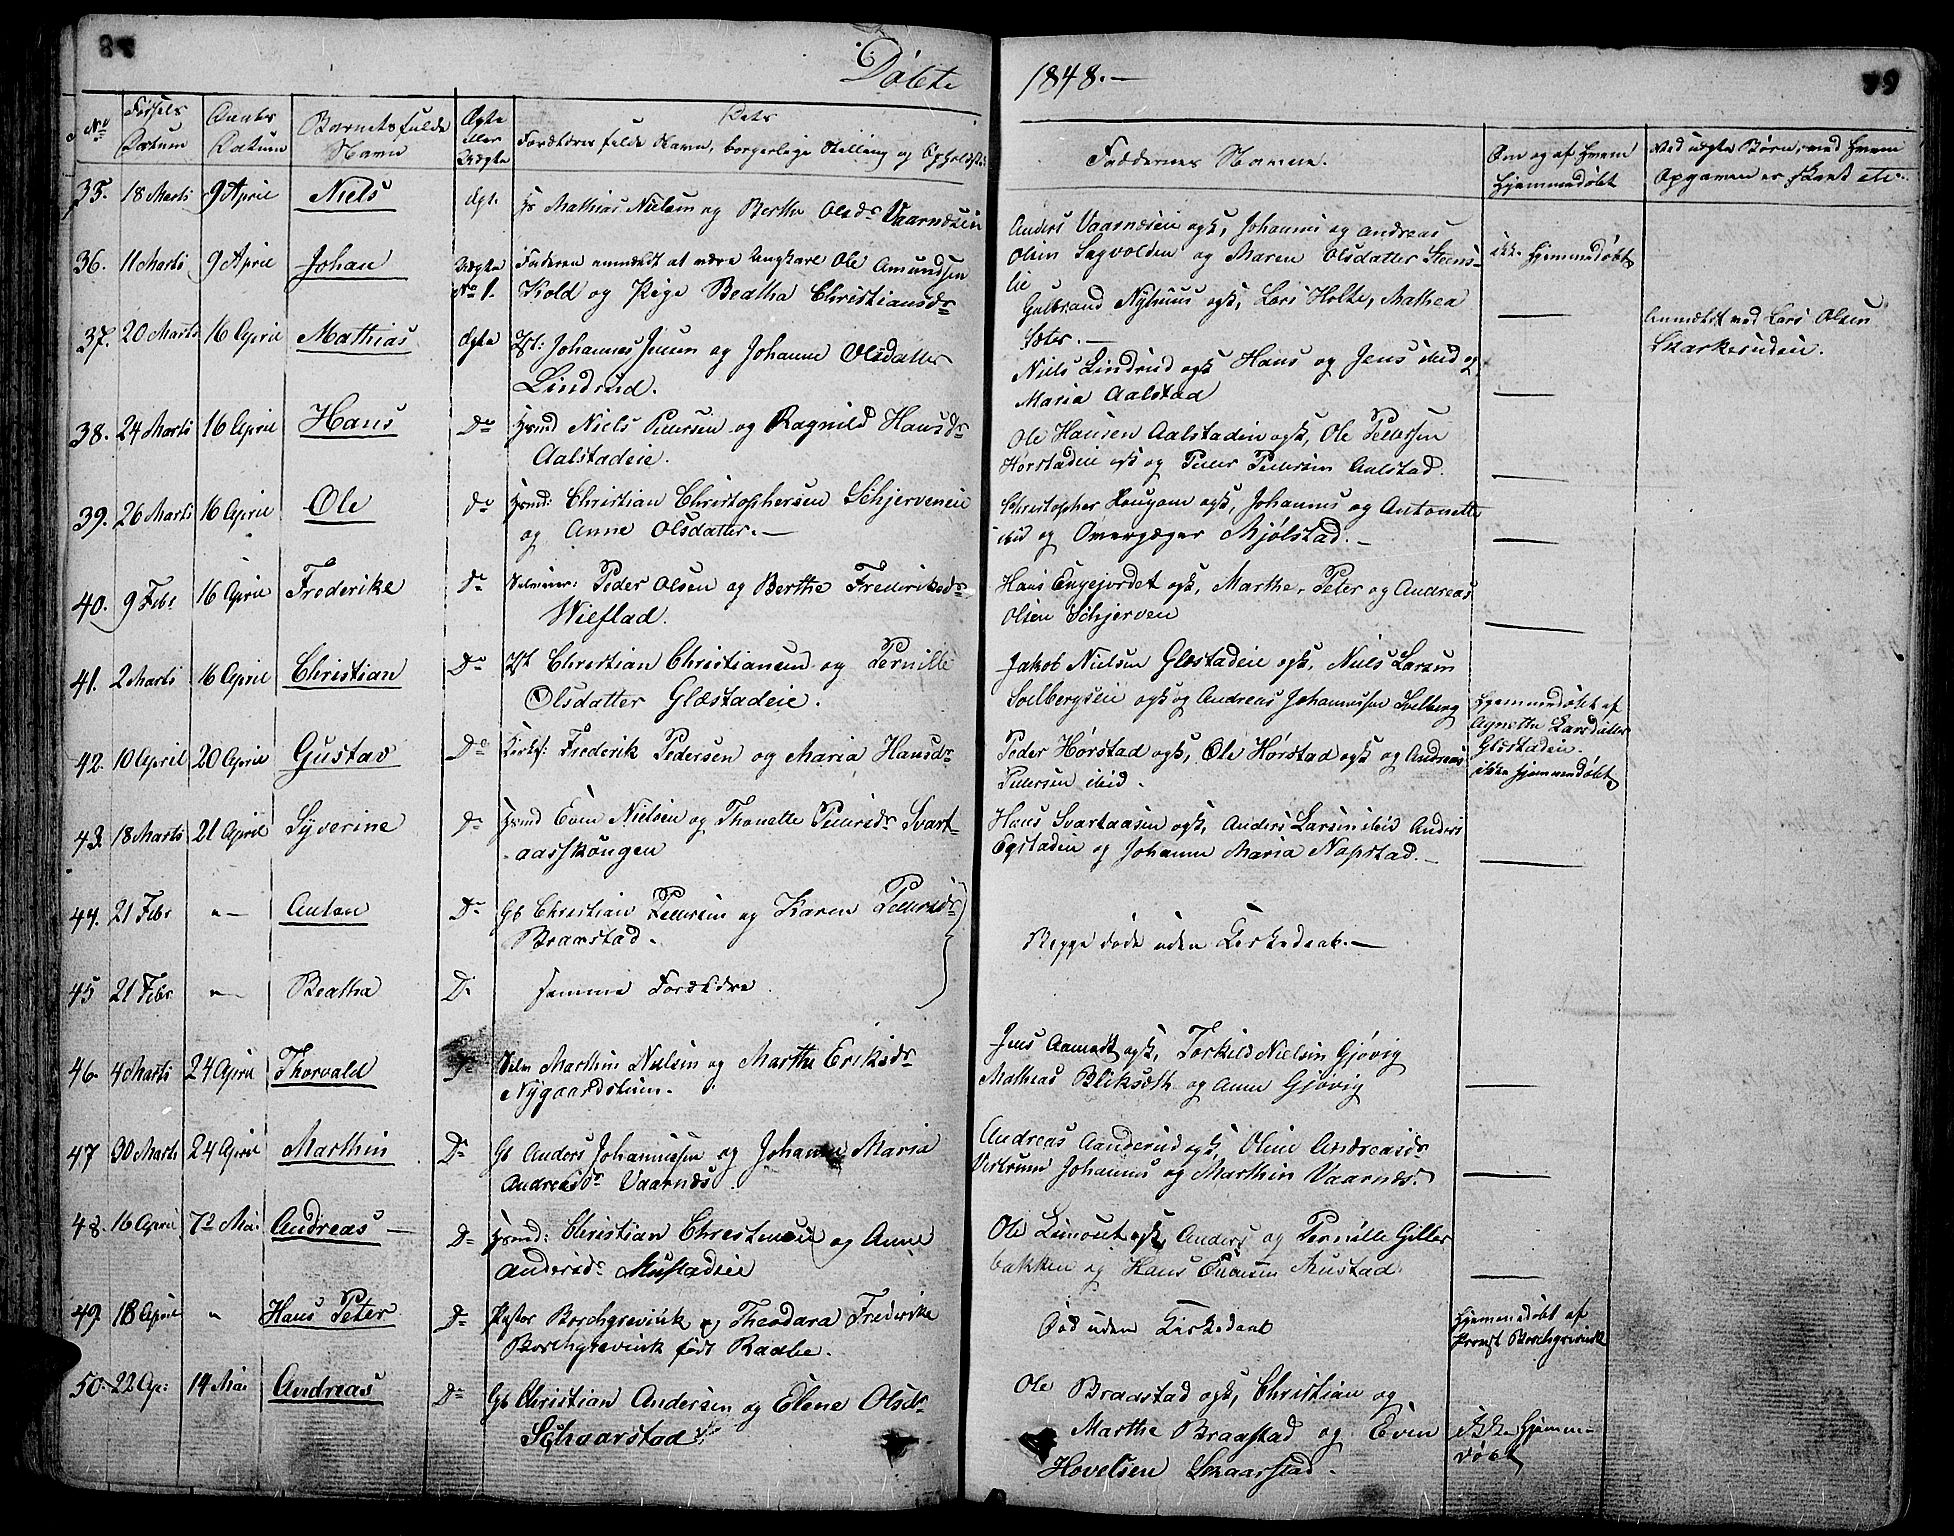 Døbte 1848.— 79
No
Fødsels Datum
Daabs Datum
Barnets fulde Navn
Ægte eller Uægte
Dets
Forældres fulde Navn, borgerlige Stilling og Opholdsted
Faddernes Navne.
Om og af hvem Hjemmedøbt
Ved uægte Børn, ved hvem
Opgaven er skeet etc.
35. 18 Marts 9 April Niels Ægt. Hs Mathias Nielsen og Berthe Olsdr Vaarnæseie
Anders Vaarnæseie ogk, Johannes og Andreas
Olsen Sagvolden og Maren Olsdatter Steens-
lie
ikke hjemmedøbt
36. 11 Marts 9 April Johan Uægte Faderen anmeldt at være Ungkarl Ole Amundsen
No 1. Kold og Pige Beatha Christiansdr
Gulbrand Nyhuus ogk, Lars Holte, Mathea
Sæter.—
Anmeldt ved Lars Olsen
Skarkerudeie.
37. 20 Marts 16 April Mathias Ægte Johannes Jensen og Johanne Olsdatter
Lindrud.
Niels Lindrud ogk Hans og Jens ibid og
Maria Aalstad
38. 24 Marts 16 April Hans Do Hsmd Niels Pedersen og Ragnild Hansdr
Aalstadeie.
Ole Hansen Aalstadeie ogk, Ole Pedersen
Hørstadeie ogk og Peder Pedersen Aalstad.
39. 26 Marts 16 April Ole Do Hsmd: Christian Christophersen Schjerveneie
og Anne Olsdatter.—
Christopher Hougom ogk, Johannes og Antonette
ibid og Mjølstad.—
40. 9 Febr 16 April Frederike Do Peder Olsen og Berthe Frederiksdr
Wiestad.
Hans Engejordet ogk, Marthe, Peter og Andreas
Olsen Schjerven
41. 2 Marts 16 April Christian Do Christian Christiansen og Pernille
Olsdatter Glæstadeie.
Jakob Nielsen Glæstadeie ogk, Niels Larsen
Solbergseie ogk og Andreas Johannessen Solberg
Hjemmedøbt af
Agnethe Larsdatter
Glæstadeie.
42. 10 April 20 April Gustav Do Frederik Pedersen og Maria Hansdr
Peder Hørstad ogk, Ole Hørstad ogk og Andreas
Pedersen ibid.
ikke hjemmedøbt
43. 18 Marts 21 April Syverine Do Hsmd Even Nielsen og Thonette Pedersdr Svart-
aasskougen
Hans Svartaasen ogk, Anders Larsen ibid Anders
Egstadeie og Johanne Maria Napstad.—
44. 21 Febr "— Anton Do Gb Christian Pedersen og Karen Pedersdr
Braastad.
Begge døde uden Kirkedaab.—
45 21 Febr "— Beatha Do samme Forældre.
46. 4 Marts 24 April Thorvald Do Marthin Nielsen og Marthe Eriksdr
Nygaardsteien.
Jens Aamodt ogk, Torkild Nielsen Gjøvig
Mathias Bliksæth og Anne Gjøvig
47 30 Marts 24 April Marthin Do Gb Anders Johannessen og Johanne Maria
Andreasdr Vaarnæs.
Andreas Aanderud ogk, Oline Andreasdr
Johannes og Marthin Vaarnæs.
48. 16 April 7de Mai Andreas — Do Hsmd: Christian Christensen og Anne
Andersdr Mustadeie
Ole ogk, Anders og Pernille Giller
bakken og Hans Evensen Mustad
49. 18 April " Hans Peter Do Pastor Borchgrevink og Theodora Frederike
Borchgrevink født Raabe.
Død uden Kirkedaab
Hjemmedøbt af
Provst Borchgrevink
50. 22 Ap: 14 Mai Andreas Do Gb Christian Andersen og Elene Olsdr
Schaarstad.
Ole Braastad ogk, Christian og
Marthe Braastad og Even
Hovelsen Skaarstad.
ikke Hjemme-
døbt